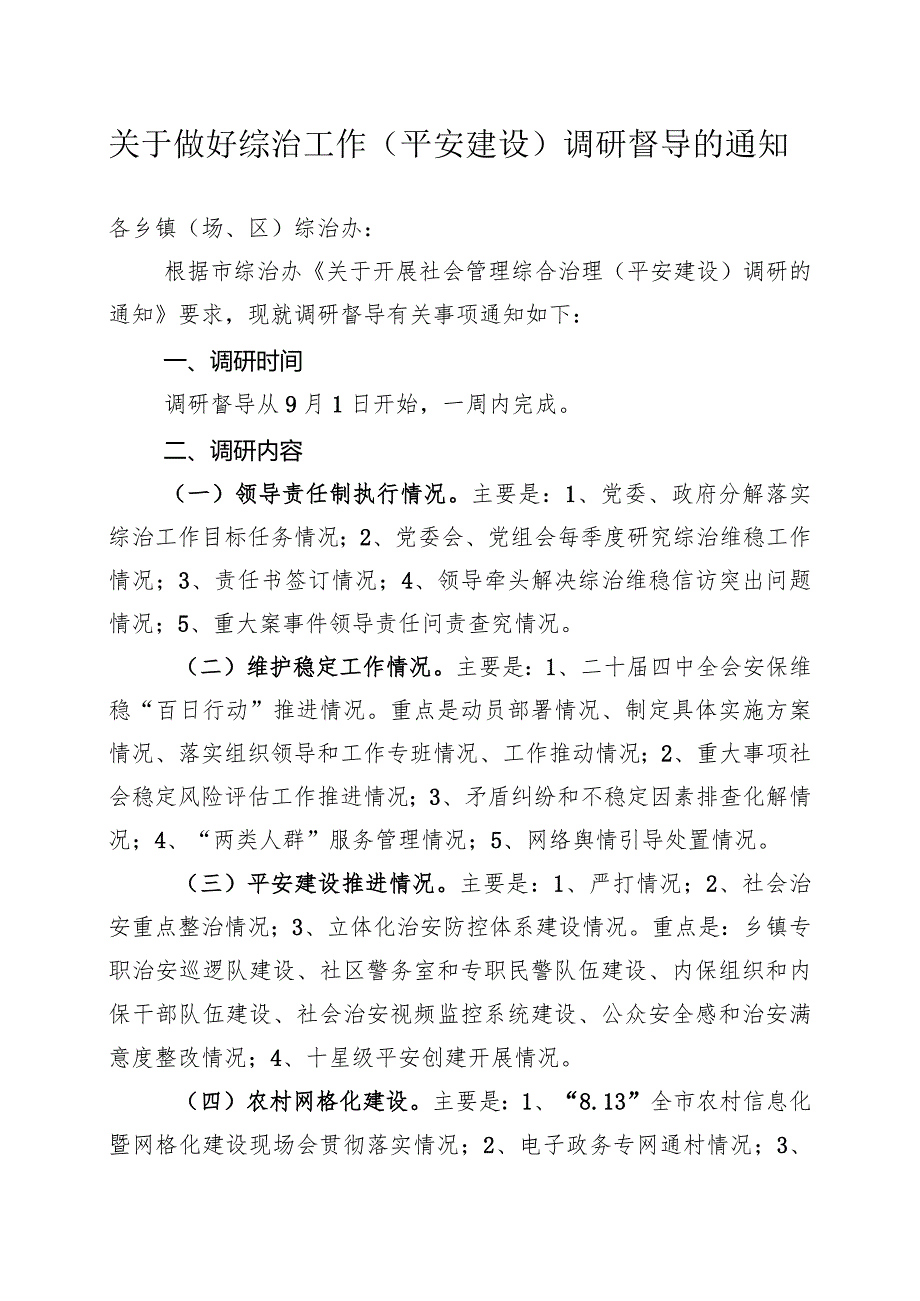 关于做好综治工作（平安建设）调研督导的通知
各乡镇（场、区）综治办：
根据市综治办《关于开展社会管理综合治理（平安建设）调研的
通知》要求，现就调研督导有关事项通知如下：
一、调研时间
调研督导从9月1日开始，一周内完成。
二、调研内容
（一）领导责任制执行情况。主要是：1、党委、政府分解落实
综治工作目标任务情况；2、党委会、党组会每季度研究综治维稳工作
情况；3、责任书签订情况；4、领导牵头解决综治维稳信访突出问题
情况；5、重大案事件领导责任问责查究情况。
（二）维护稳定工作情况。主要是：1、二十届四中全会安保维
稳“百日行动”推进情况。重点是动员部署情况、制定具体实施方案
情况、落实组织领导和工作专班情况、工作推动情况；2、重大事项社
会稳定风险评估工作推进情况；3、矛盾纠纷和不稳定因素排查化解情
况；4、“两类人群”服务管理情况；5、网络舆情引导处置情况。
（三）平安建设推进情况。主要是：1、严打情况；2、社会治
安重点整治情况；3、立体化治安防控体系建设情况。重点是：乡镇专
职治安巡逻队建设、社区警务室和专职民警队伍建设、内保组织和内
保干部队伍建设、社会治安视频监控系统建设、公众安全感和治安满
意度整改情况；4、十星级平安创建开展情况。
（四）农村网格化建设。主要是：1、“8.13”全市农村信息化
暨网格化建设现场会贯彻落实情况；2、电子政务专网通村情况；3、